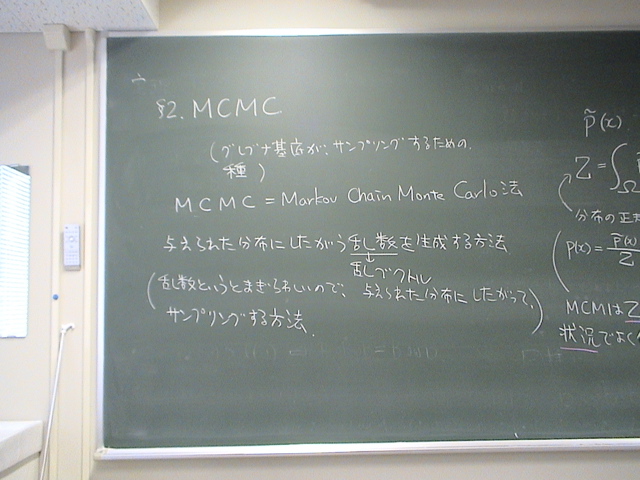 §2. MCMC
(グレブナ基底が、サンプリングするための
種)
MCMC = Markov Chain Monte Carlo 法
与えられた分布にしたがう乱数を生成する方法
↓
乱しベクトル
(乱数というとまぎらわしいので、与えられた分布にしたがって、
サンプリングする方法.)
p̃(x)
Z = ∫Ω
分布の正規
p(x) = p̃(x)/Z
MCMCは Z
状況でよく